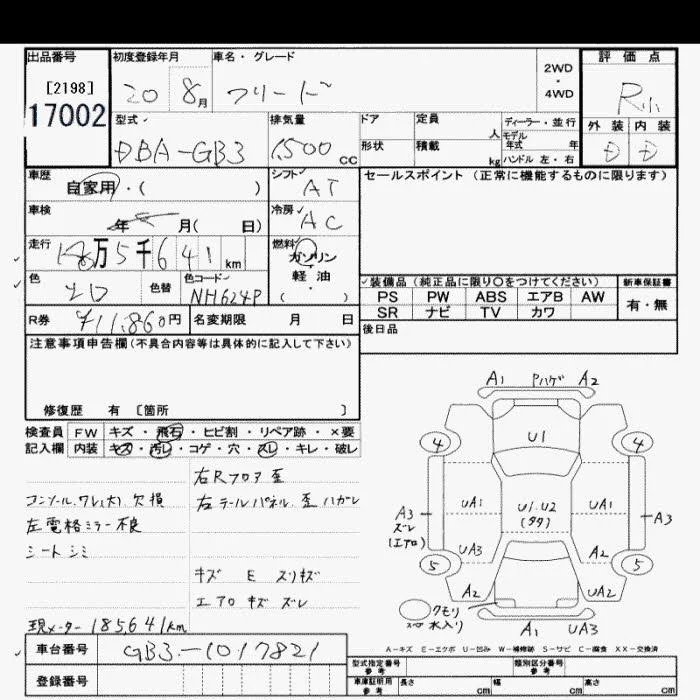 出品番号 初度登録年月 車名・グレード 評価点
[2198]
17002
20 8月 フリード 2WD・4WD R小
型式 排気量 ドア 定員 人 ディーラー・並行 外装 内装
DBA-GB3 1,500cc 形状 積載 kg モデル年式 年 ハンドル 左・右 D D
車歴 自家用・( ) シフト AT セールスポイント(正常に機能するものに限ります)
車検 年 月( 日) 冷房 AC
走行 18万5千641km 燃料 ガソリン 軽油 ( )
色 色替 色コード NH624P
装備品(純正品に限り○をつけてください) 新車保証書
PS PW ABS エアB AW 有・無
SR ナビ TV カワ
R券 ¥11,860円 名変期限 月 日 後日品
注意事項申告欄(不具合内容等は具体的に記入して下さい)
修復歴 有 [箇所 ]
検査員 FW キズ・飛石・ヒビ割・リペア跡・×要
記入欄 内装 キズ・汚レ・コゲ・穴・スレ・キレ・破レ
右Rフロア歪
コンソール.ワレ(大)欠損 右テールパネル歪ハガレ
左電格ミラー不良
シートシミ
キズ E スリキズ
エアロキズズレ
現メーター185641km
A1 Pハゲ A2
4 U1 4
UA1 U1.U2 UA1
(タタ)
A3 A3
ズレ
(エアロ)
UA3 A2
5 5
A2 UA2
クモリ
水入り
A1 UA3
A-キズ E-エクボ U-凹み W-補修跡 S-サビ C-腐食 XX-交換済
車台番号 GB3-1017821
登録番号
型式指定番号 参考 類別区分番号 参考
車庫証明用 参考 長さ cm 幅 cm 高さ cm